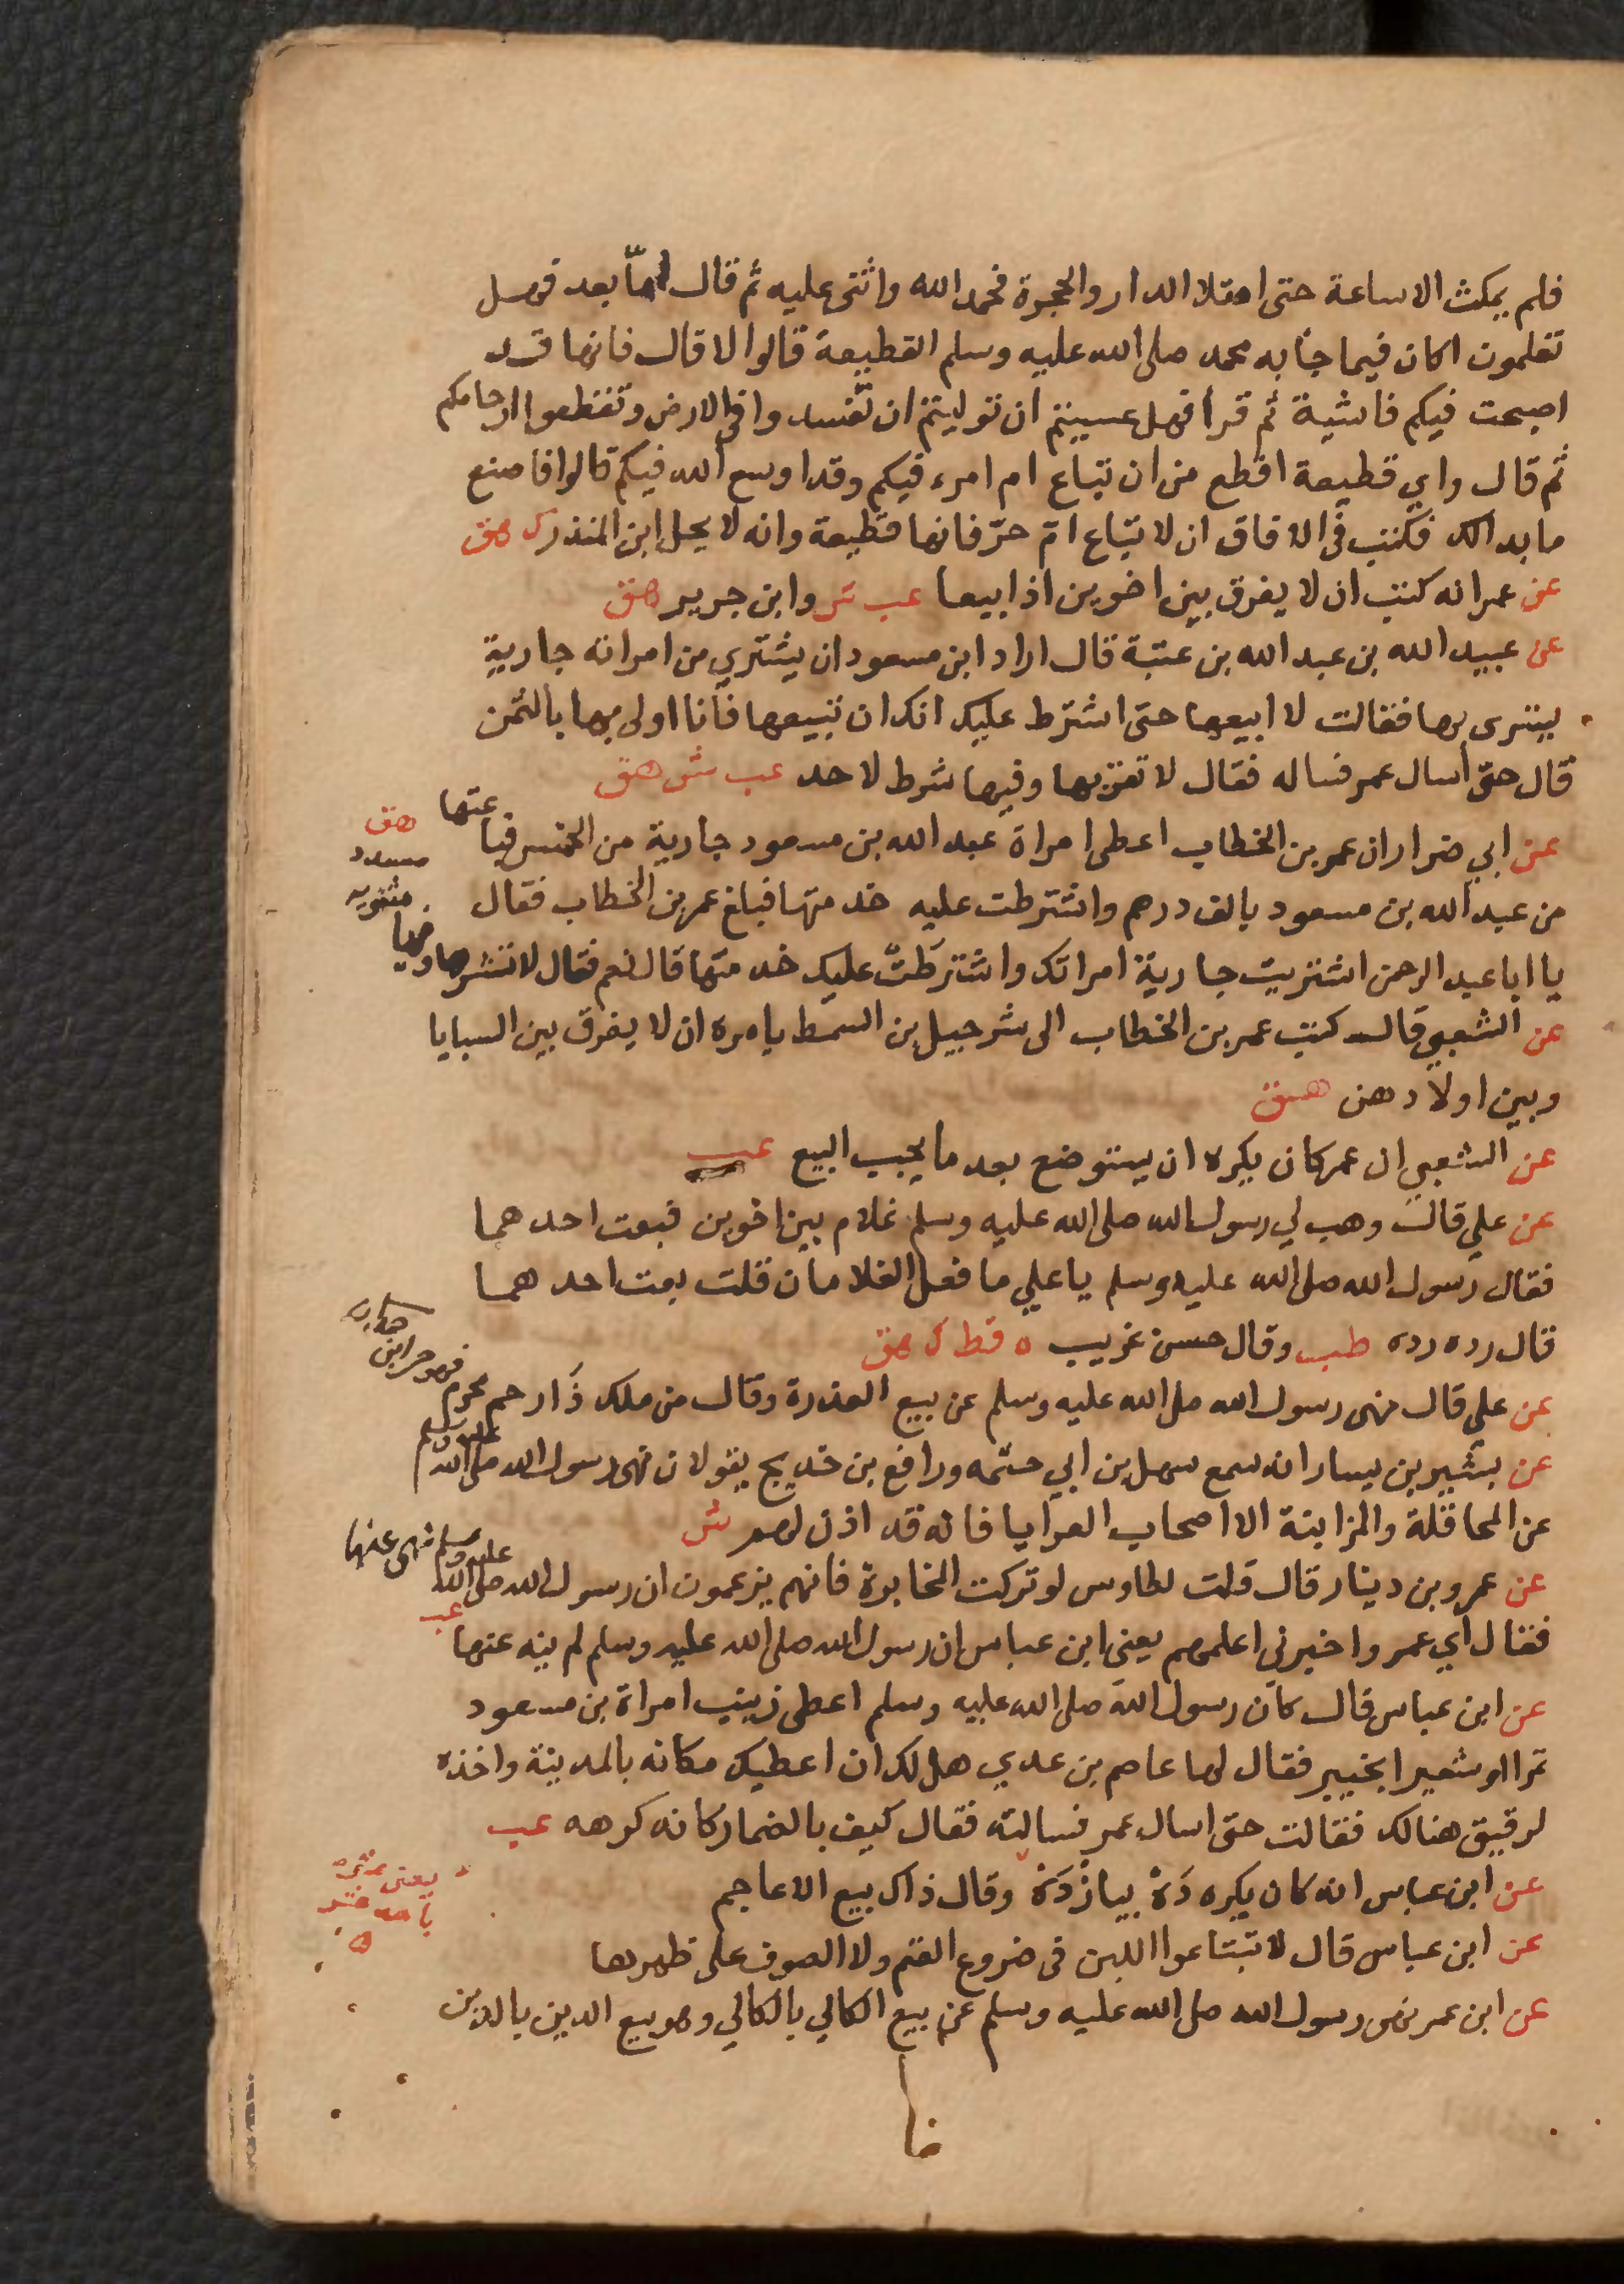 فلم يمكث الا ساعة حتى امتلا الدار والحجرة فحمد الله واثنى عليه ثم قال اما بعد فهل
تعلمون اكان فيما جأ به محمد صلى الله عليه وسلم القطيعة قالوا لا قال فانها قد
اصبحت فيكم فاشية ثم قرأ فهل عسيتم ان توليتم ان تفسدوا في الارض وتقطعوا ارحامكم
ثم قال واي قطيعة اقطع من ان تباع ام امرء فيكم وقد اوسع الله فيكم قالوا فاصنع
ما بدالك فكتب في الافاق ان لا تباع ام حرّ فانها قطيعة وانه لا يحل ابن المنذر ك هق
عن عمر انه كتب ان لا يفرق بين اخوين اذا بيعا عب ش وابن جرير هق
عن عبيد الله بن عبد الله بن عتبة قال اراد ابن مسعود ان يشتري من امراته جارية
يتسرى بها فقالت لا ابيعها حتى اشترط عليك انك ان تبيعها فانا اولى بها بالثمن
قال حتى أسال عمر فساله فقال لا تقربها وفيها شرط لاحد عب ش هق
عن ابي ضرار ان عمر بن الخطاب اعطى امراة عبد الله بن مسعود جارية من الخمس فباعتها
من عبد الله بن مسعود بالف درهم واشترطت عليه خدمتها فبلغ عمر بن الخطاب فقال
يا ابا عبد الرحمن اشتريت جارية امراتك واشترَطَتْ عليك خدمتها قال نعم فقال لا تشترها وفيها
مثنوية
مسدد
هق
عن الشعبي قال كتب عمر بن الخطاب الى شرحبيل بن السمط يامره ان لا يفرق بين السبايا
وبين اولادهن هق
عن الشعبي ان عمر كان يكره ان يستوضع بعد ما يجب البيع عب
عن علي قال وهب لي رسول الله صلى الله عليه وسلم غلام بين اخوين فبعت احدهما
فقال رسول الله صلى الله عليه وسلم يا علي ما فعل الغلامان قلت بعت احدهما
قال رده رده طب وقال حسن غريب ه قط ك هق
عن علي قال نهى رسول الله صلى الله عليه وسلم عن بيع العذرة وقال من ملك ذَا رحم محرم فهو حر ابن
عن بشير بن يسار انه سمع سهل بن ابي حثمه ورافع بن خديج يقولان نهى رسول الله صلى الله عليه وسلم
عن المحاقلة والمزابنة الا اصحاب العرايا فانه قد اذن لهم ش
عن عمرو بن دينار قال قلت لطاوس لو تركت المخابرة فانهم يزعمون ان رسول الله صلى الله عليه وسلم نهى عنها
فقال أي عمرو اخبرنى اعلمهم يعنى ابن عباس ان رسول الله صلى الله عليه وسلم لم ينه عنها عب
عن ابن عباس قال كان رسول الله صلى الله عليه وسلم اعطى زينب امراة بن مسعود
تمرا او شعيرا بخيبر فقال لها عاصم بن عدي هل لك ان اعطيك مكانه بالمدينة واخذه
لرقيق هنالك فقالت حتى اسال عمر فسالته فقال كيف بالضمار كانه كرهه عب
عن ابن عباس انه كان يكره دَهْ بيازْدَهْ وقال ذاك بيع الاعاجم
يعنى عشرة
عن ابن عباس قال لا تبتاعوا اللبن في ضروع الغنم ولا الصوف على ظهرها
عن ابن عمر نهى رسول الله صلى الله عليه وسلم عن بيع الكالي بالكالي وهو بيع الدين بالدين